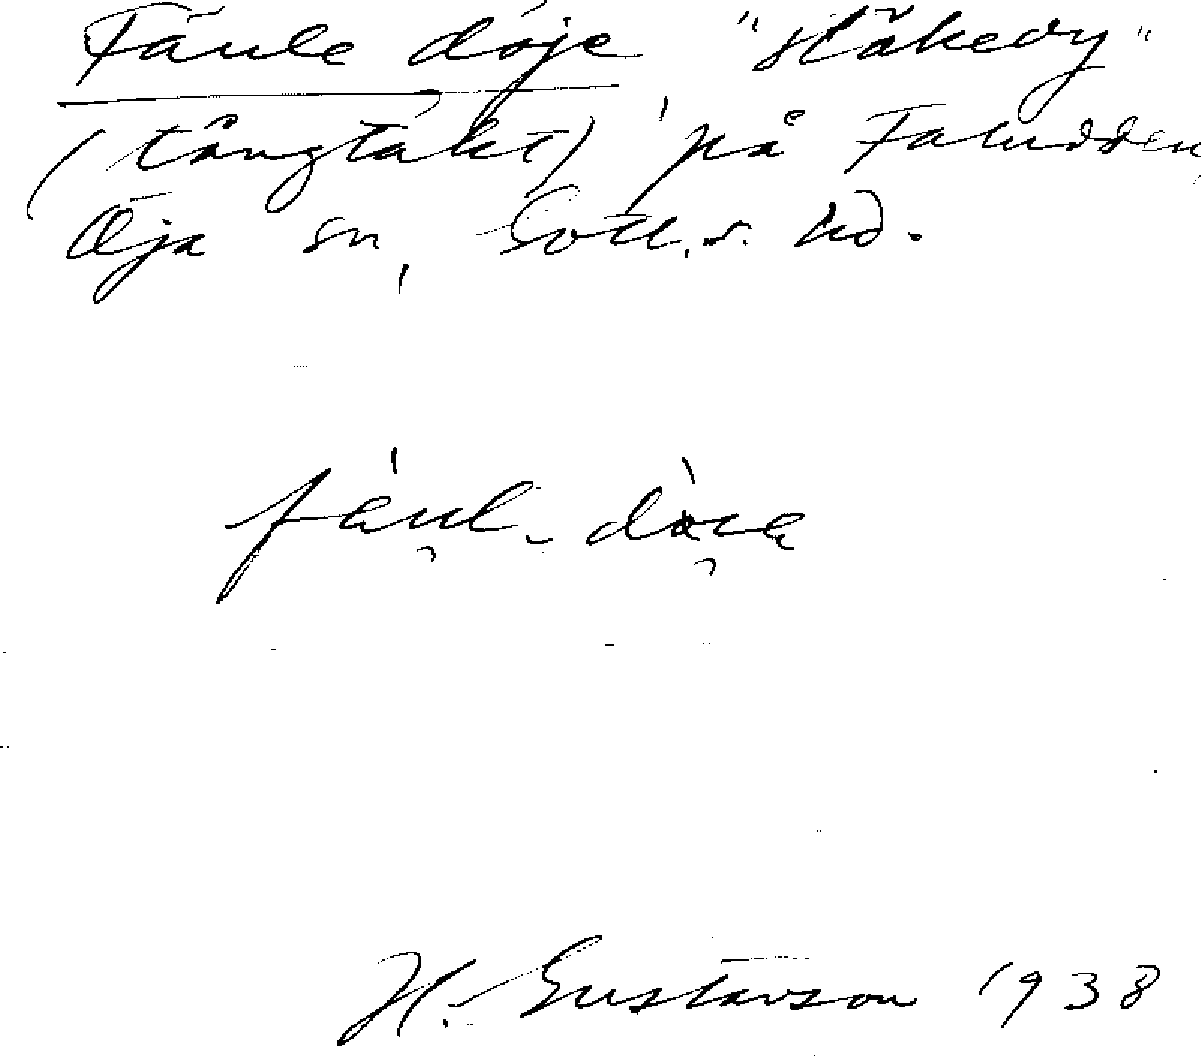 Fäule döje "ståkedy"
(tångtäkt) på Faludden,
Öja sn, Gotl. s. hd.
H. Gustavson 1938